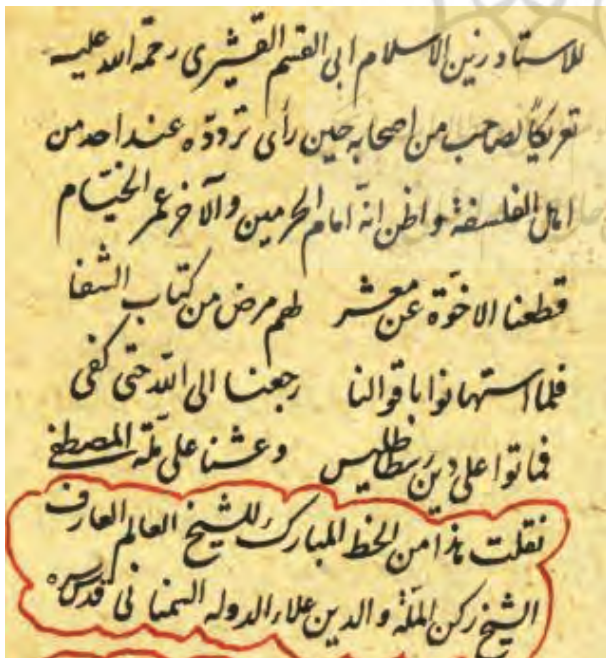 للاستاد زين الاسلام ابى القسم القشيرى رحمة الله عليه
تعريكاً لصاحب من اصحابه حين رأى تردده عند احد من
اهل الفلسفة واظن انه امام الحرمين والآخر عمر الخيام
قطعنا الاخوة عن معشر لهم مرض من كتاب الشفا
فلما استهانوا باقوالنا رجعنا الى الله حتى كفى
فماتوا على دين رسطاليس وعشنا على ملّة المصطفى
نقلت هذا من الخط المبارك للشيخ العالم العارف
الشيخ ركن الملّة والدين علاء الدوله السمنانى قدس سره